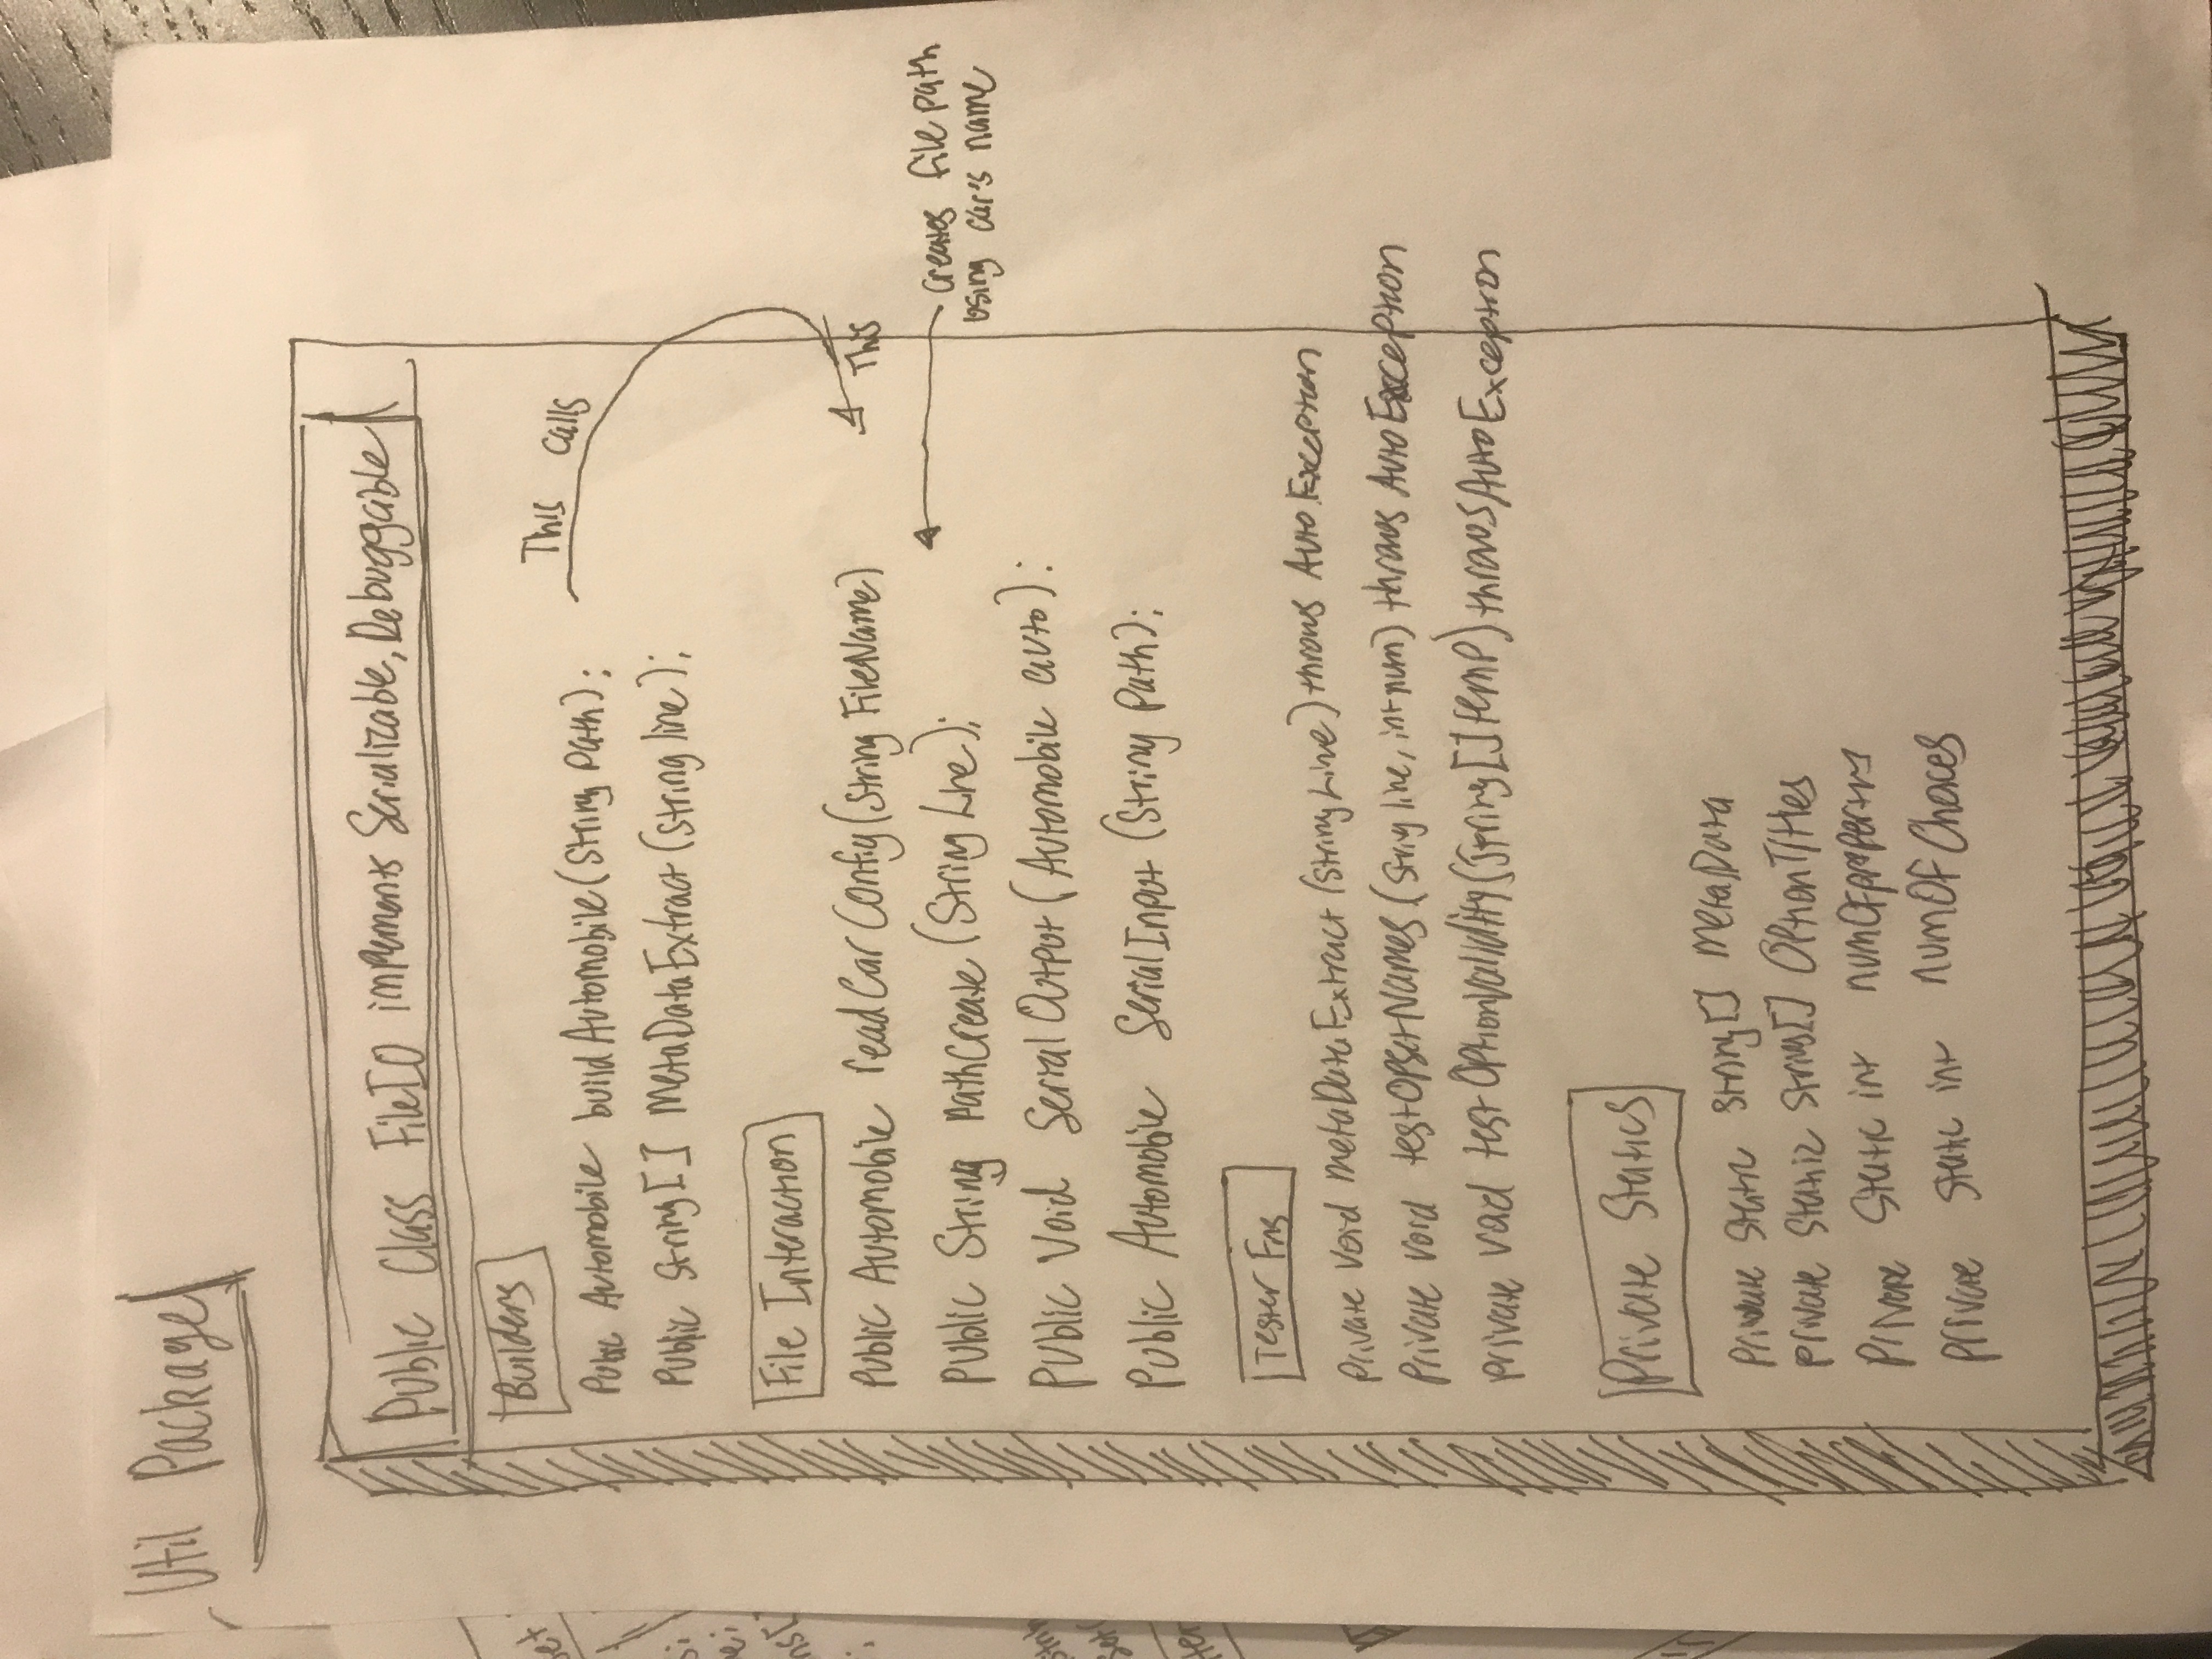 Util Package
Public Class FileIO impements Serializable, Debuggable
Builders
Public Automobile buildAutomobile(String Path);
This calls
Public String[] MetaDataExtract(String line);
File Interaction
Public Automobile readCarConfig(String FileName)
This
Public String PathCreate(String Line);
Creates file path
using car's name
Public Void SerialOutput(Automobile auto);
Public Automobile SerialInput(String Path);
Tester Fns
Private Void metaDataExtract(String Line) throws AutoException
Private void testOpsetNames(String line, int num) throws AutoException
Private void testOptionValidity(String[] temp) throws AutoException
Private Statics
Private Static String[] MetaData
Private Static String[] OptionTitles
Private Static int numOf
Private Static int numOfChoices